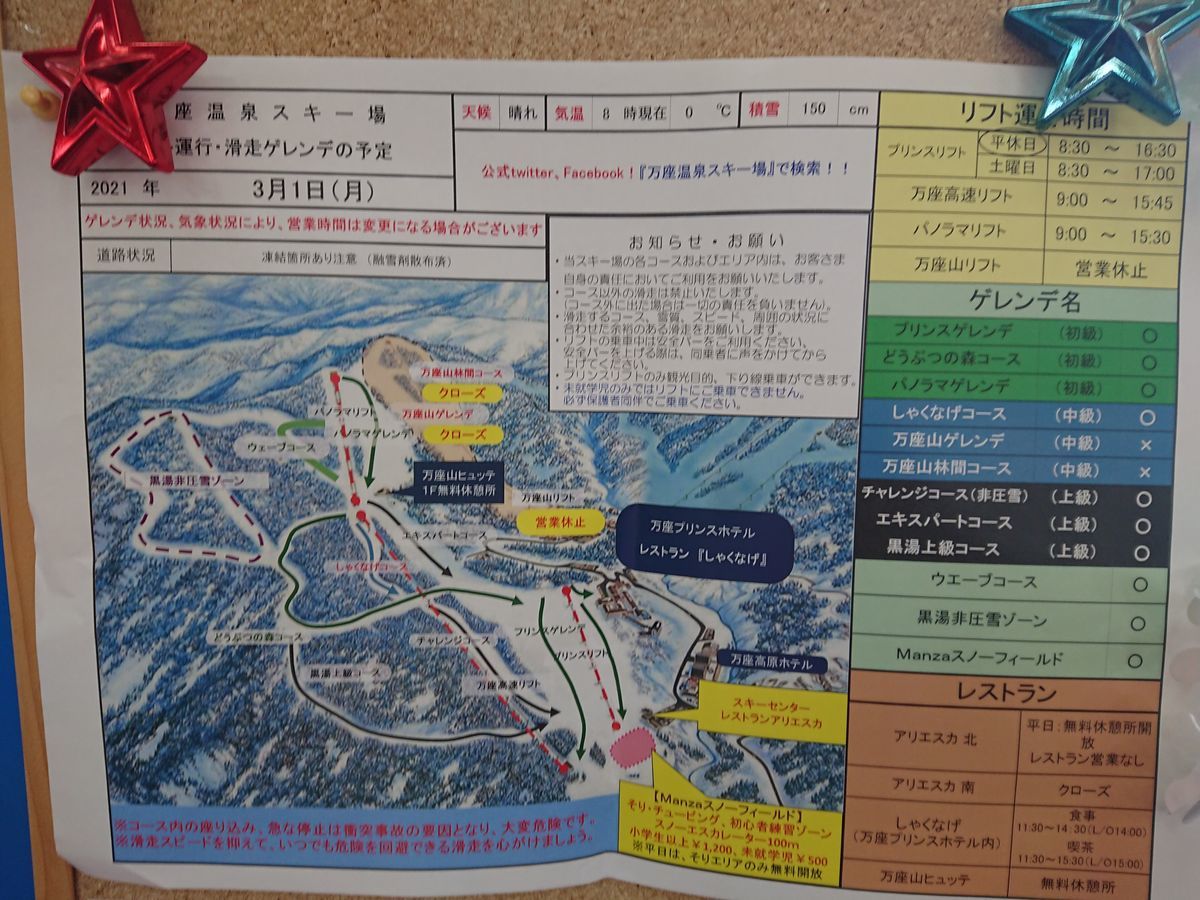 座温泉スキー場
運行・滑走ゲレンデの予定
2021 年 3月1日(月)
天候 晴れ 気温 8 時現在 0 ℃ 積雪 150 cm
公式twitter、Facebook！『万座温泉スキー場』で検索！！
ゲレンデ状況、気象状況により、営業時間は変更になる場合がございます
道路状況 凍結箇所あり注意 （融雪剤散布済）
お知らせ・お願い
・当スキー場の各コースおよびエリア内は、お客さま
自身の責任においてご利用をお願いいたします。
・コース以外の滑走は禁止いたします。
（コース外に出た場合は一切の責任を負いません）。
・滑走するコース、雪質、スピード、周囲の状況に
合わせた余裕のある滑走をお願いします。
・リフトの乗車中は安全バーをご利用ください。
安全バーを上げる際は、同乗者に声をかけてから
上げてください。
・プリンスリフトのみ観光目的、下り線乗車ができます。
・未就学児のみではリフトにご乗車できません。
必ず保護者同伴でご乗車ください。
万座山林間コース
クローズ
万座山ゲレンデ
クローズ
パノラマリフト
パノラマゲレンデ
ウェーブコース
黒湯非圧雪ゾーン
万座山ヒュッテ
1F無料休憩所
万座山リフト
営業休止
エキスパートコース
万座プリンスホテル
レストラン『しゃくなげ』
しゃくなげコース
どうぶつの森コース
チャレンジコース
プリンスゲレンデ
プリンスリフト
黒湯上級コース
万座高速リフト
万座高原ホテル
スキーセンター
レストランアリエスカ
【Manzaスノーフィールド】
そり・チュービング、初心者練習ゾーン
スノーエスカレーター100m
小学生以上￥1,200、未就学児￥500
※平日は、そりエリアのみ無料開放
※コース内の座り込み、急な停止は衝突事故の要因となり、大変危険です。
※滑走スピードを抑えて、いつでも危険を回避できる滑走を心がけましょう。
リフト運 時間
プリンスリフト 平休日 8:30 ～ 16:30
土曜日 8:30 ～ 17:00
万座高速リフト 9:00 ～ 15:45
パノラマリフト 9:00 ～ 15:30
万座山リフト 営業休止
ゲレンデ名
プリンスゲレンデ （初級） ○
どうぶつの森コース （初級） ○
パノラマゲレンデ （初級） ○
しゃくなげコース （中級） ○
万座山ゲレンデ （中級） ×
万座山林間コース （中級） ×
チャレンジコース(非圧雪) （上級） ○
エキスパートコース （上級） ○
黒湯上級コース （上級） ○
ウエーブコース ○
黒湯非圧雪ゾーン ○
Manzaスノーフィールド ○
レストラン
アリエスカ 北 平日：無料休憩所開
放
レストラン営業なし
アリエスカ 南 クローズ
しゃくなげ
（万座プリンスホテル内）
食事
11:30～14:30(L/O14:00)
喫茶
11:30～15:30(L/O15:00)
万座山ヒュッテ 無料休憩所